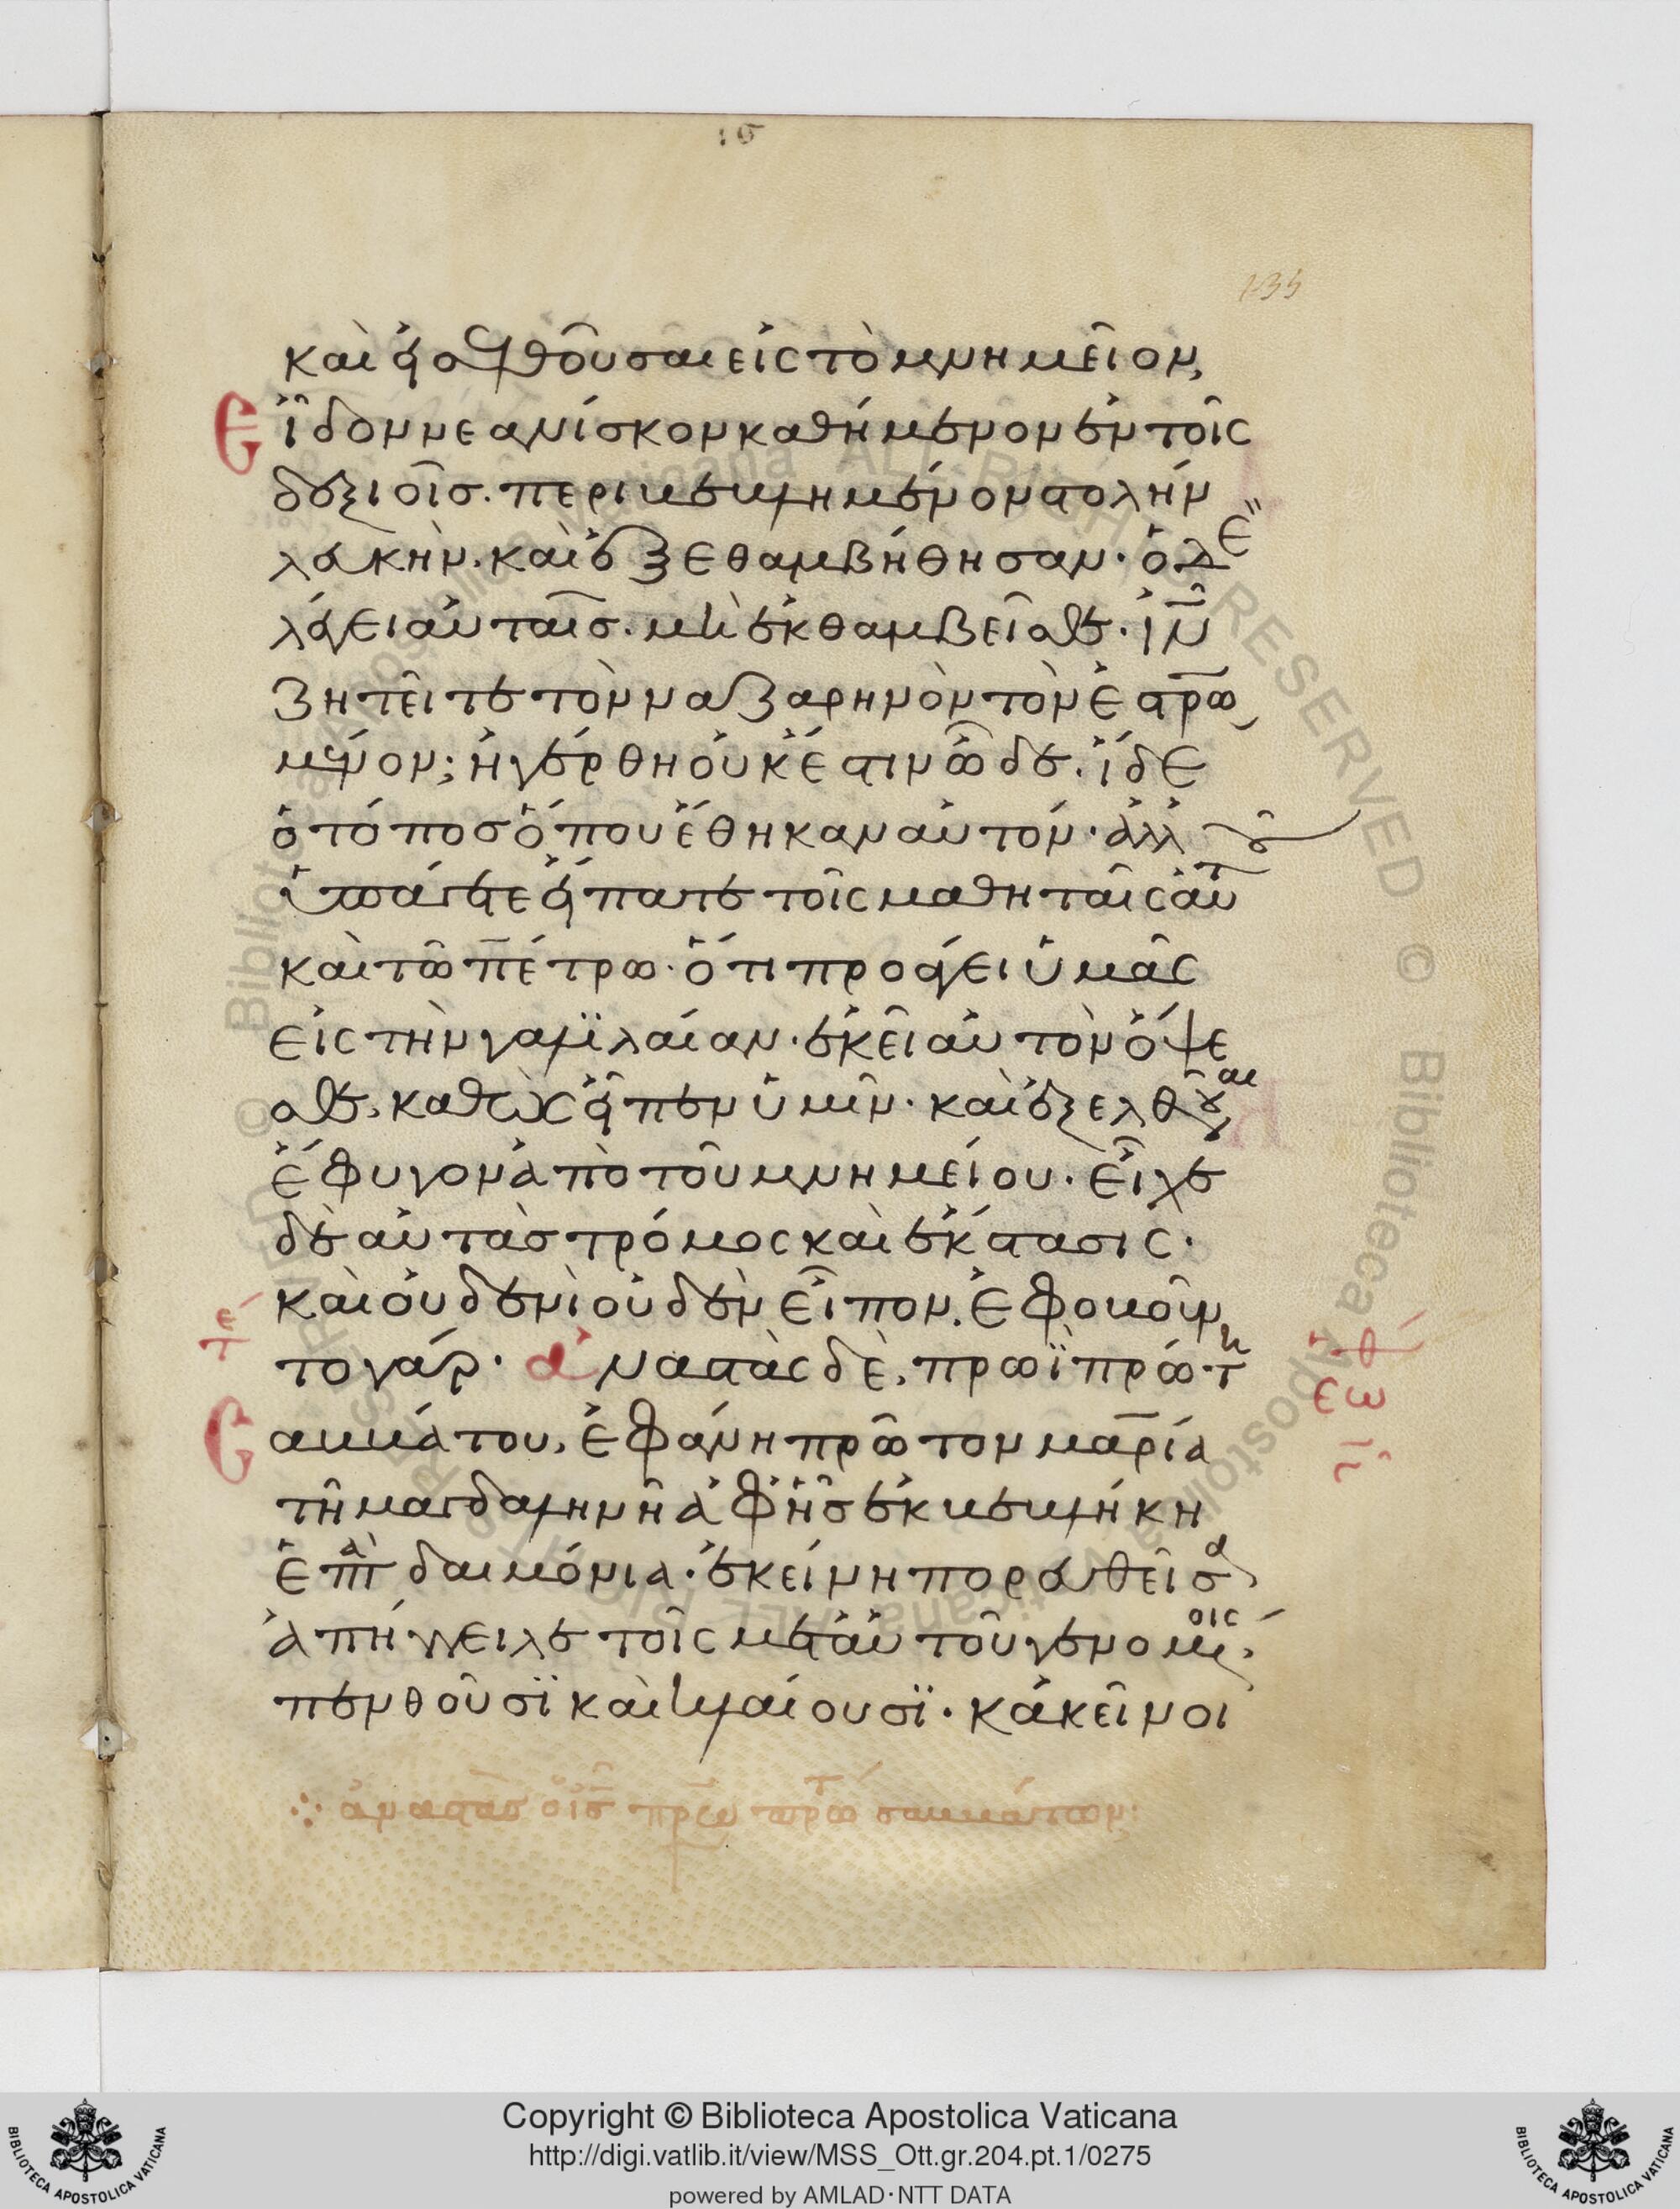 ις
135
καὶ ἐσελθοῦσαι εἰς τὸ μνημεῖον,
εἶδον νεανίσκον καθήμενον ἐν τοῖς
δεξιοῖς. περιβεβλημένον στολὴν
λευκὴν. καὶ ἐξεθαμβήθησαν. ὁ δὲ
λέγει αὐταῖς. μὴ ἐκθαμβεῖσθε. ἰν̅
ζητεῖτε τὸν ναζαρηνὸν τὸν ἐστρω
μένον; ἠγέρθη οὐκ ἔστιν ὧδε. ἴδε
ὁ τόπος ὅπου ἔθηκαν αὐτόν. ἀλλ
ὑπάγετε εἴπατε τοῖς μαθηταῖς αὐτ
καὶ τῶ πέτρω. ὅτι προάγει ὑμᾶς
εἰς τὴν γαλϊλαίαν. ἐκεῖ αὐτὸν ὄψε
σθε. καθὼς εἶπεν ὑμῖν. καὶ ἐξελθοῦσαι
ἔφυγον ἀπὸ τοῦ μνημείου. εἶχε
δὲ αὐτὰς τρόμος καὶ ἔκστασις.
καὶ οὐδενὶ οὐδὲν εἶπον. ἐφοβοῦν
το γάρ. ἀναστὰς δὲ, πρωῒ πρώτη
σαββάτου, ἐφάνη πρῶτον μαρία
τῆ μαγδαληνῆ ἀφ ἧς ἐκβεβλήκη
ἑπτὰ δαιμόνια. ἐκείνη πορευθεῖσα
ἀπήγγειλε τοῖς μετ αὐτοῦ γενομένοις,
πενθοῦσϊ καὶ κλαίουσϊ. κἀκεῖνοι
ἀναστὰς ὁ ις̅ πρωι πρω σαββάτων:
Copyright © Biblioteca Apostolica Vaticana
http://digi.vatlib.it/view/MSS_Ott.gr.204.pt.1/0275
powered by AMLAD·NTT DATA
BIBLIOTECA APOSTOLICA VATICANA
BIBLIOTECA APOSTOLICA VATICANA